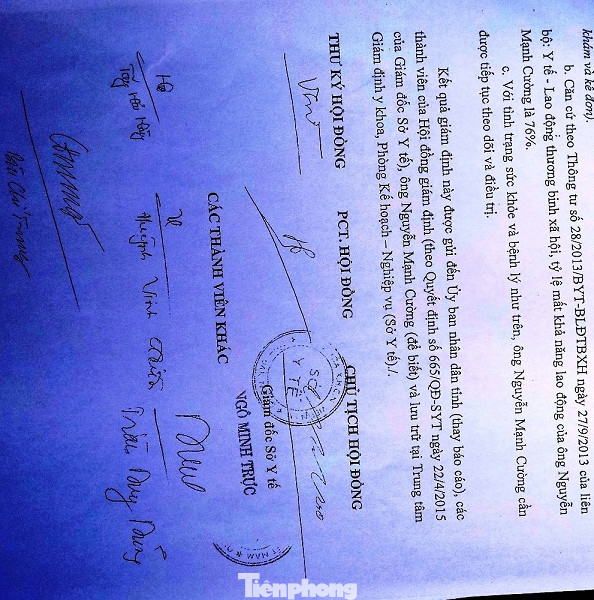 khám và kê đơn).
b. Căn cứ theo Thông tư số 28/2013/BYT-BLĐTBXH ngày 27/9/2013 của liên
bộ: Y tế - Lao động thương binh xã hội, tỷ lệ mất khả năng lao động của ông Nguyễn
Mạnh Cường là 76%.
c. Với tình trạng sức khỏe và bệnh lý như trên, ông Nguyễn Mạnh Cường cần
được tiếp tục theo dõi và điều trị.
Kết quả giám định này được gửi đến Ủy ban nhân dân tỉnh (thay báo cáo), các
thành viên của Hội đồng giám định (theo Quyết định số 665/QĐ-SYT ngày 22/4/2015
của Giám đốc Sở Y tế), ông Nguyễn Mạnh Cường (để biết) và lưu trữ tại Trung tâm
Giám định y khoa, Phòng Kế hoạch – Nghiệp vụ (Sở Y tế)./.
THƯ KÝ HỘI ĐỒNG PCT. HỘI ĐỒNG CHỦ TỊCH HỘI ĐỒNG
SỞ
Y TẾ
Giám đốc Sở Y tế
NGÔ MINH TRỰC
CÁC THÀNH VIÊN KHÁC
Huỳnh Vinh
Trần Duy Dũng
Tiềnphong